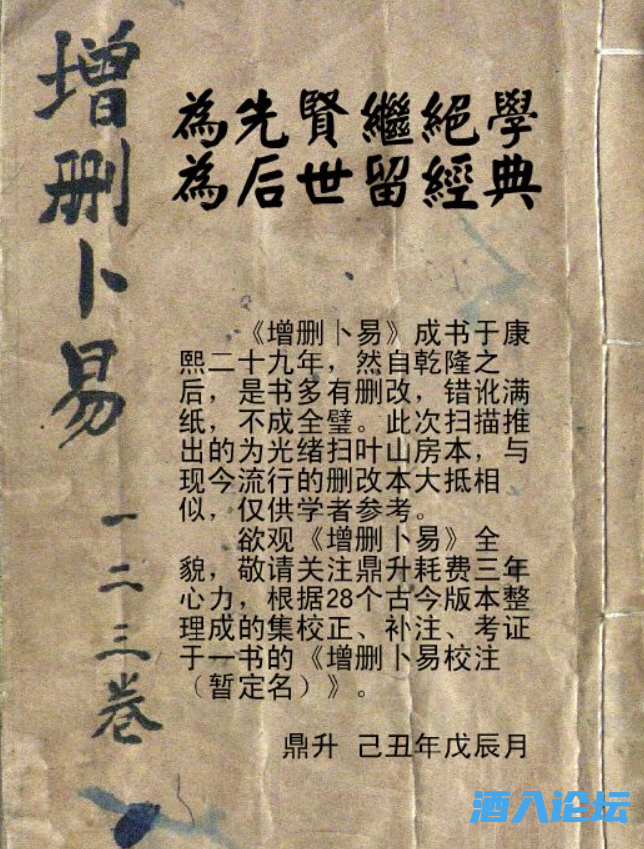 增删卜易
一二三卷
為先賢繼絕學
為后世留經典
《增删卜易》成书于康
熙二十九年，然自乾隆之
后，是书多有删改，错讹满
纸，不成全璧。此次扫描推
出的为光绪扫叶山房本，与
现今流行的删改本大抵相
似，仅供学者参考。
欲观《增删卜易》全
貌，敬请关注鼎升耗费三年
心力，根据28个古今版本整
理成的集校正、补注、考证
于一书的《增删卜易校注
（暂定名）》。
鼎升 己丑年戊辰月
酒入论坛